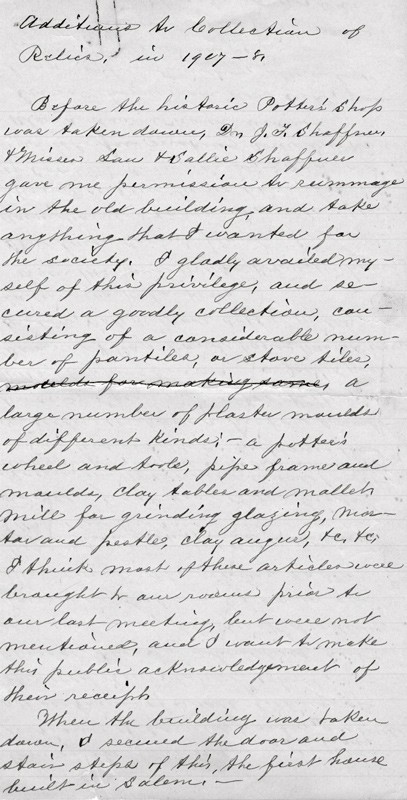 Additions to Collection of
Relics, in 1907-8.
Before the historic Potter's Shop
was taken down, Dr. J. F. Shaffner,
& Misses Lou & Sallie Shaffner
gave me permission to rummage
in the old building, and take
anything that I wanted for
the society. I gladly availed my-
self of this privilege, and se-
cured a goodly collection, con-
sisting of a considerable num-
ber of pantiles, or stove tiles,
moulds for making same, a
large number of plaster moulds
of different kinds; - a potter's
wheel and tools, pipe frame and
moulds, clay tables and mallet,
mill for grinding glazing, mor-
tar and pestle, clay auger, &c, &c.
I think most of these articles were
brought to our rooms prior to
our last meeting, but were not
mentioned, and I want to make
this public acknowledgement of
their receipt.
When the building was taken
down, I secured the door and
stair steps of this, the first house
built in Salem. -